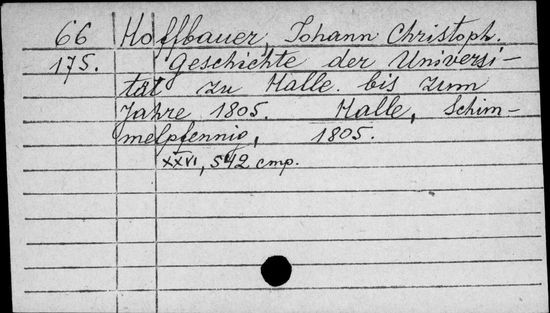 66 Hoffbauer, Johann Christoph.
175. Geschichte der Universi-
tät zu Halle bis zum
Jahre 1805. Halle, Schim-
melpfennig, 1805.
XXVI, 542 стр.